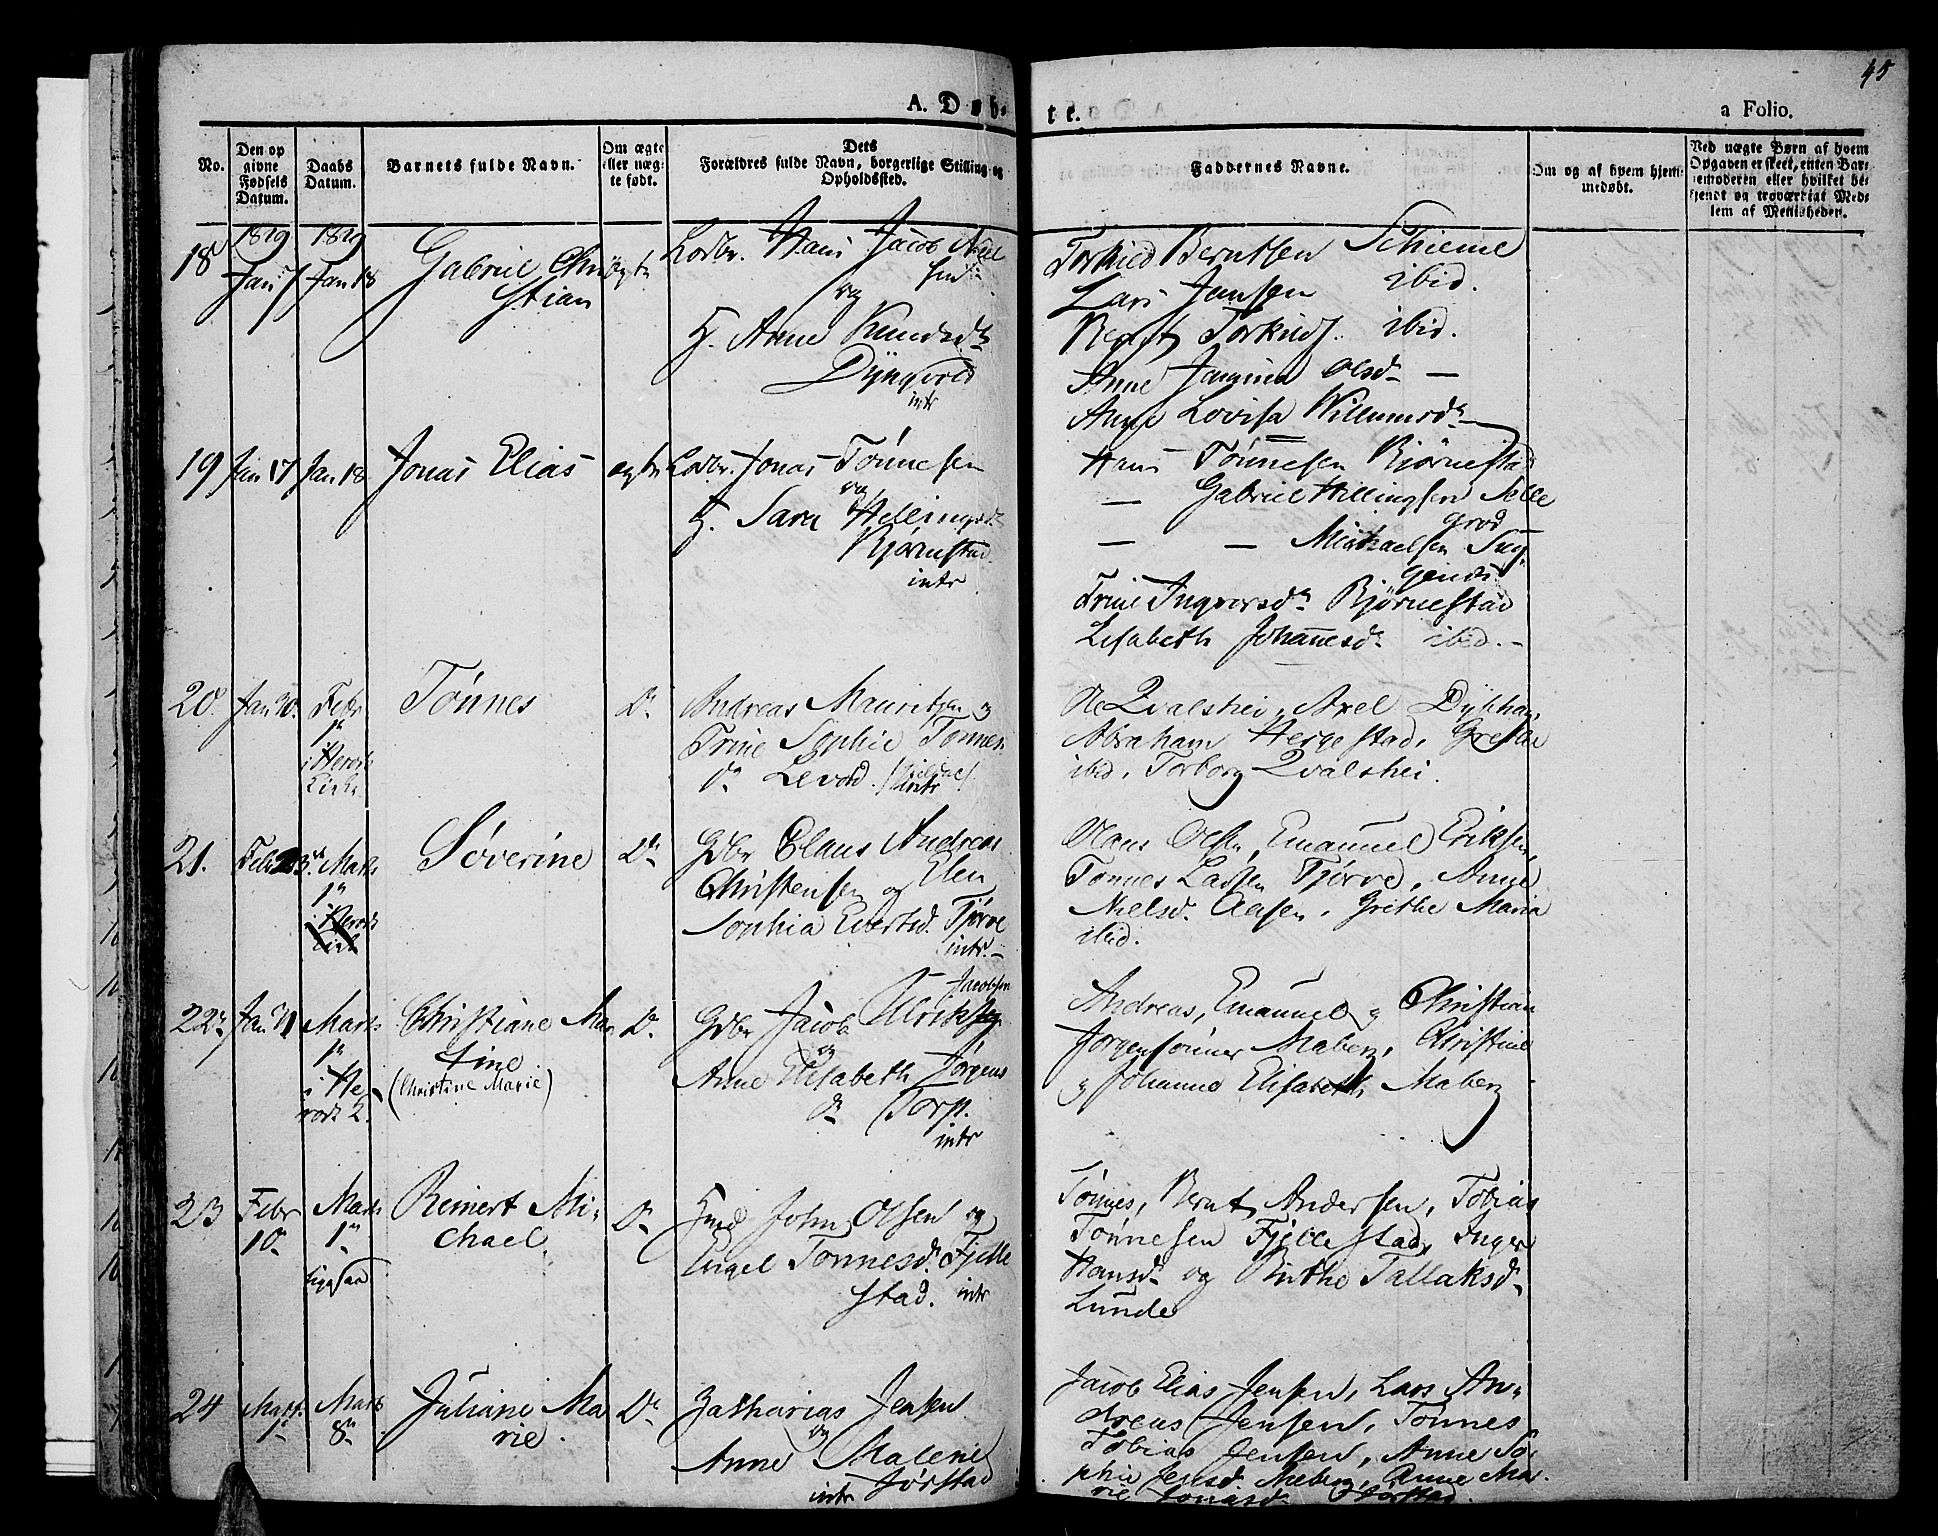 45
A. Døb-
te.
a Folio.
No.
Den op
givne
Fødsels
Datum.
Daabs
Datum.
Barnets fulde Navn.
Om ægte
eller uæg-
te født.
Dets
Forældres fulde Navn, borgerlige Stilling og
Opholdssted.
Faddernes Navne.
Om og af hvem hjem-
medøbt.
Ved uægte Børn af hvem
Opgaven er skeet, enten Bar-
nemoderen eller hvilket be-
kjendt og troværdigt Med-
lem af Menigheden.
18
1829
Jan 7
1829
Jan 18
Gabriel Chri
stian
ægte
Lodbr. Hans Jacob
og
H. Anne Knudsdr
Dyngvold
intr
Torkild Berntsen Schieme
Lars Jansen ibid.
Bernt Torkilds. ibid.
Anne Olsdr —
Anne Lovisa Willumsdr
19
Jan 17
Jan 18
Jonas Elias
ægte
Lodbr. Jonas Tönnesen
og
H. Sara Hellingsdr
Bjørnestad
intr
Hans Tönnesen Bjørnestad
— Gabriel Hillingsen Selle
grod
— — Michaelsen
Trine Ingversdr Bjørnestad
Lisabeth Johannesdr ibid.
20
Jan 30.
Febr
1
i Herads
Kirke
Tönnes
Do
Andreas Mauritzen og
Trine Sophie Tönnes
dr Levold.
intr
Ole Qvalshei, Axel
Abraham Hergestad, Grethe
ibid, Torborg Qvalshei.
21.
Febr 23
Marts
1
i Herads
Kirk
Söverine
Do
Gdbr Claus Andreas
Christensen og Elen
Sophia Evertsd. Tjørve
intr.
Claus Olsen, Emanuel Eriksen,
Tönnes Larsen Tjørve, Anne
Nielsd. Aasen, Grethe Maria
ibid.
22
Jan 31
Marts
1
i He-
rads K.
Christiane Mar
tine
(Christine Marie)
Do
Jacobsen
Gdbr Jacob Ulrik
og
Anne Elisabeth Jörgens
dr Torp.
intr
Andreas, Emanuel og Christian
Jörgensönner Maberg, Christine
og Johanne Elisabeth Maberg
23
Febr
10
Marts
1
Reinert Mi-
chael.
Do
John Olsen og
Engel Tönnesd. Fjelle
stad. intr
Tönnes, Bernt Andersen, Tobias
Tönnesen Fjellestad, Inger
Hansdr og Birthe Tallaksdr
Lunde
24
Marts
8
Juliane Ma
rie.
Do
Zacharias Jensen
og
Anne Malene
intr Jørstad
Jacob Elias Jensen, Lars An-
dreas Jensen, Tönnes
Tobias Jensen, Anne So-
phie Jensd. Maberg, Anne Ma-
rie Jørstad.